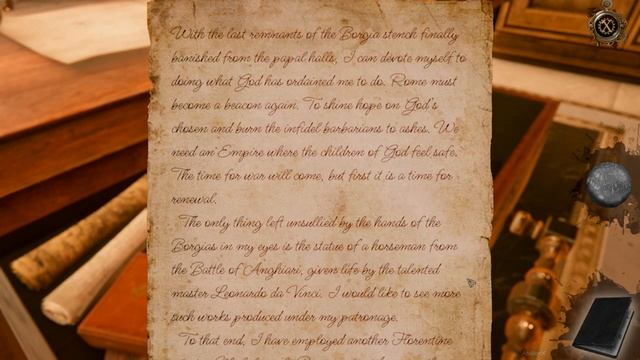 With the last remnants of the Borgia stench finally
banished from the papal halls, I can devote myself to
doing what God has ordained me to do. Rome must
become a beacon again. To shine hope on God's
chosen and burn the infidel barbarians to ashes. We
need an Empire where the children of God feel safe.
The time for war will come, but first it is a time for
renewal.
The only thing left unsullied by the hands of the
Borgias in my eyes is the statue of a horseman from
the Battle of Anghiari, given life by the talented
master Leonardo da Vinci. I would like to see more
such works produced under my patronage.
To that end, I have employed another Florentine